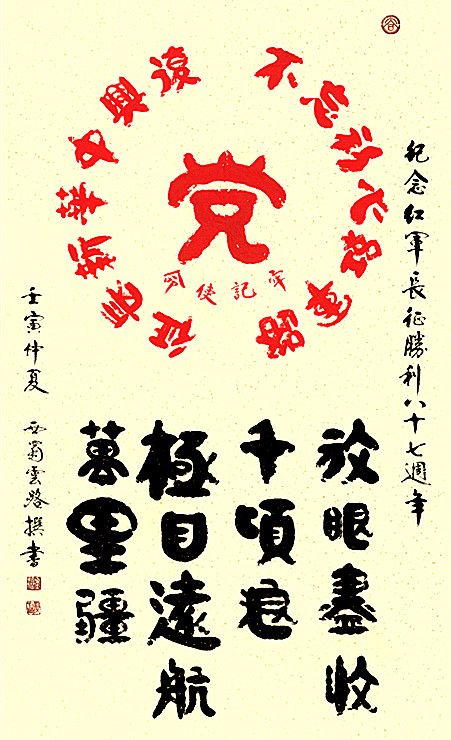 紀念红軍長征勝利八十七週年
不忘初心強軍路
復興中華新長征
党
牢記使命
放眼盡收
千頃浪
極目遠航
萬里疆
壬寅仲夏 西蜀雲路撰書